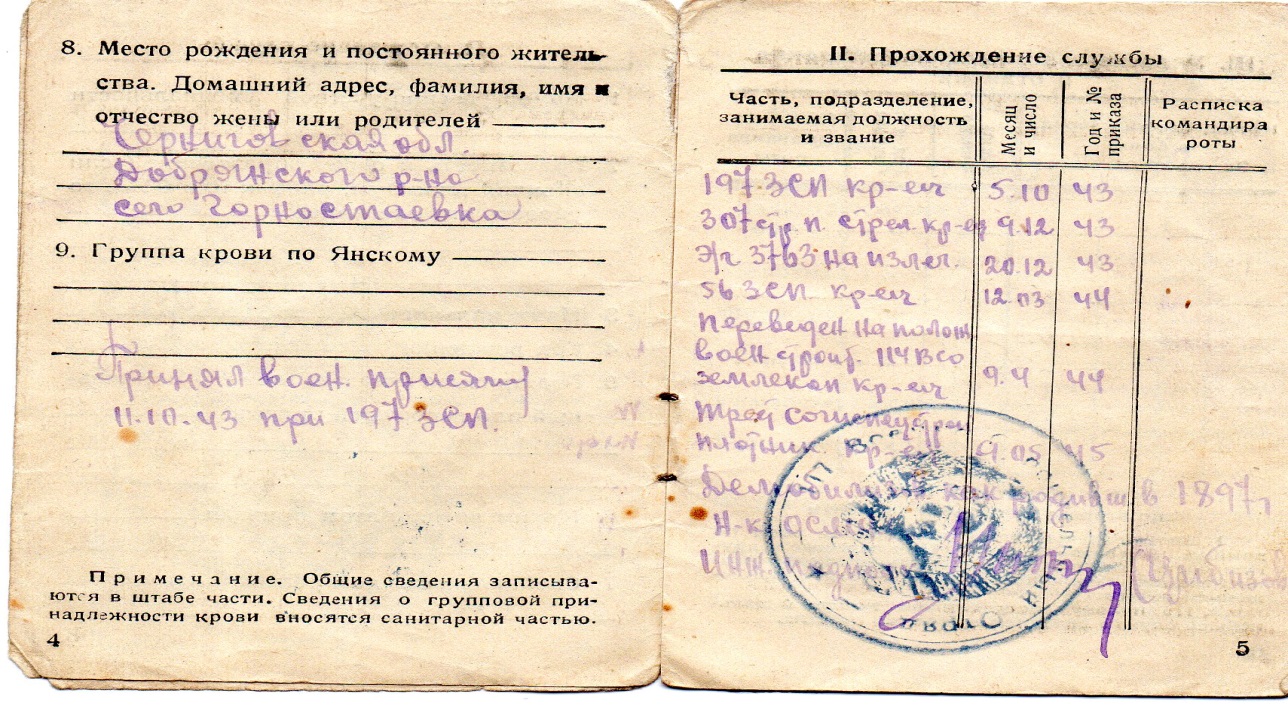 8. Место рождения и постоянного житель-
ства. Домашний адрес, фамилия, имя и
отчество жены или родителей
Черниговская обл.
Добрянского р-на
село Горностаевка
9. Группа крови по Янскому
Принял воен. присягу
11.10.43 при 197 ЗСП.
Примечание. Общие сведения записыва-
ются в штабе части. Сведения о групповой при-
надлежности крови вносятся санитарной частью.
4
II. Прохождение службы
Часть, подразделение, занимаемая должность и звание
Месяц и число
Год и № приказа
Расписка командира роты
197 ЗСП кр-ец 5.10 43
307 стр. п. стрел. кр-ец 9.12 43
Э/г 3763 на излеч. 20.12 43
56 ЗСП кр-ец 12.03 44
Переведен на полож.
воен строит. 114 ВСО
землекоп кр-ец 9.4 44
плотник кр-ец 9.05 45
как родивш в 1897 г
Н-к
Инж
5